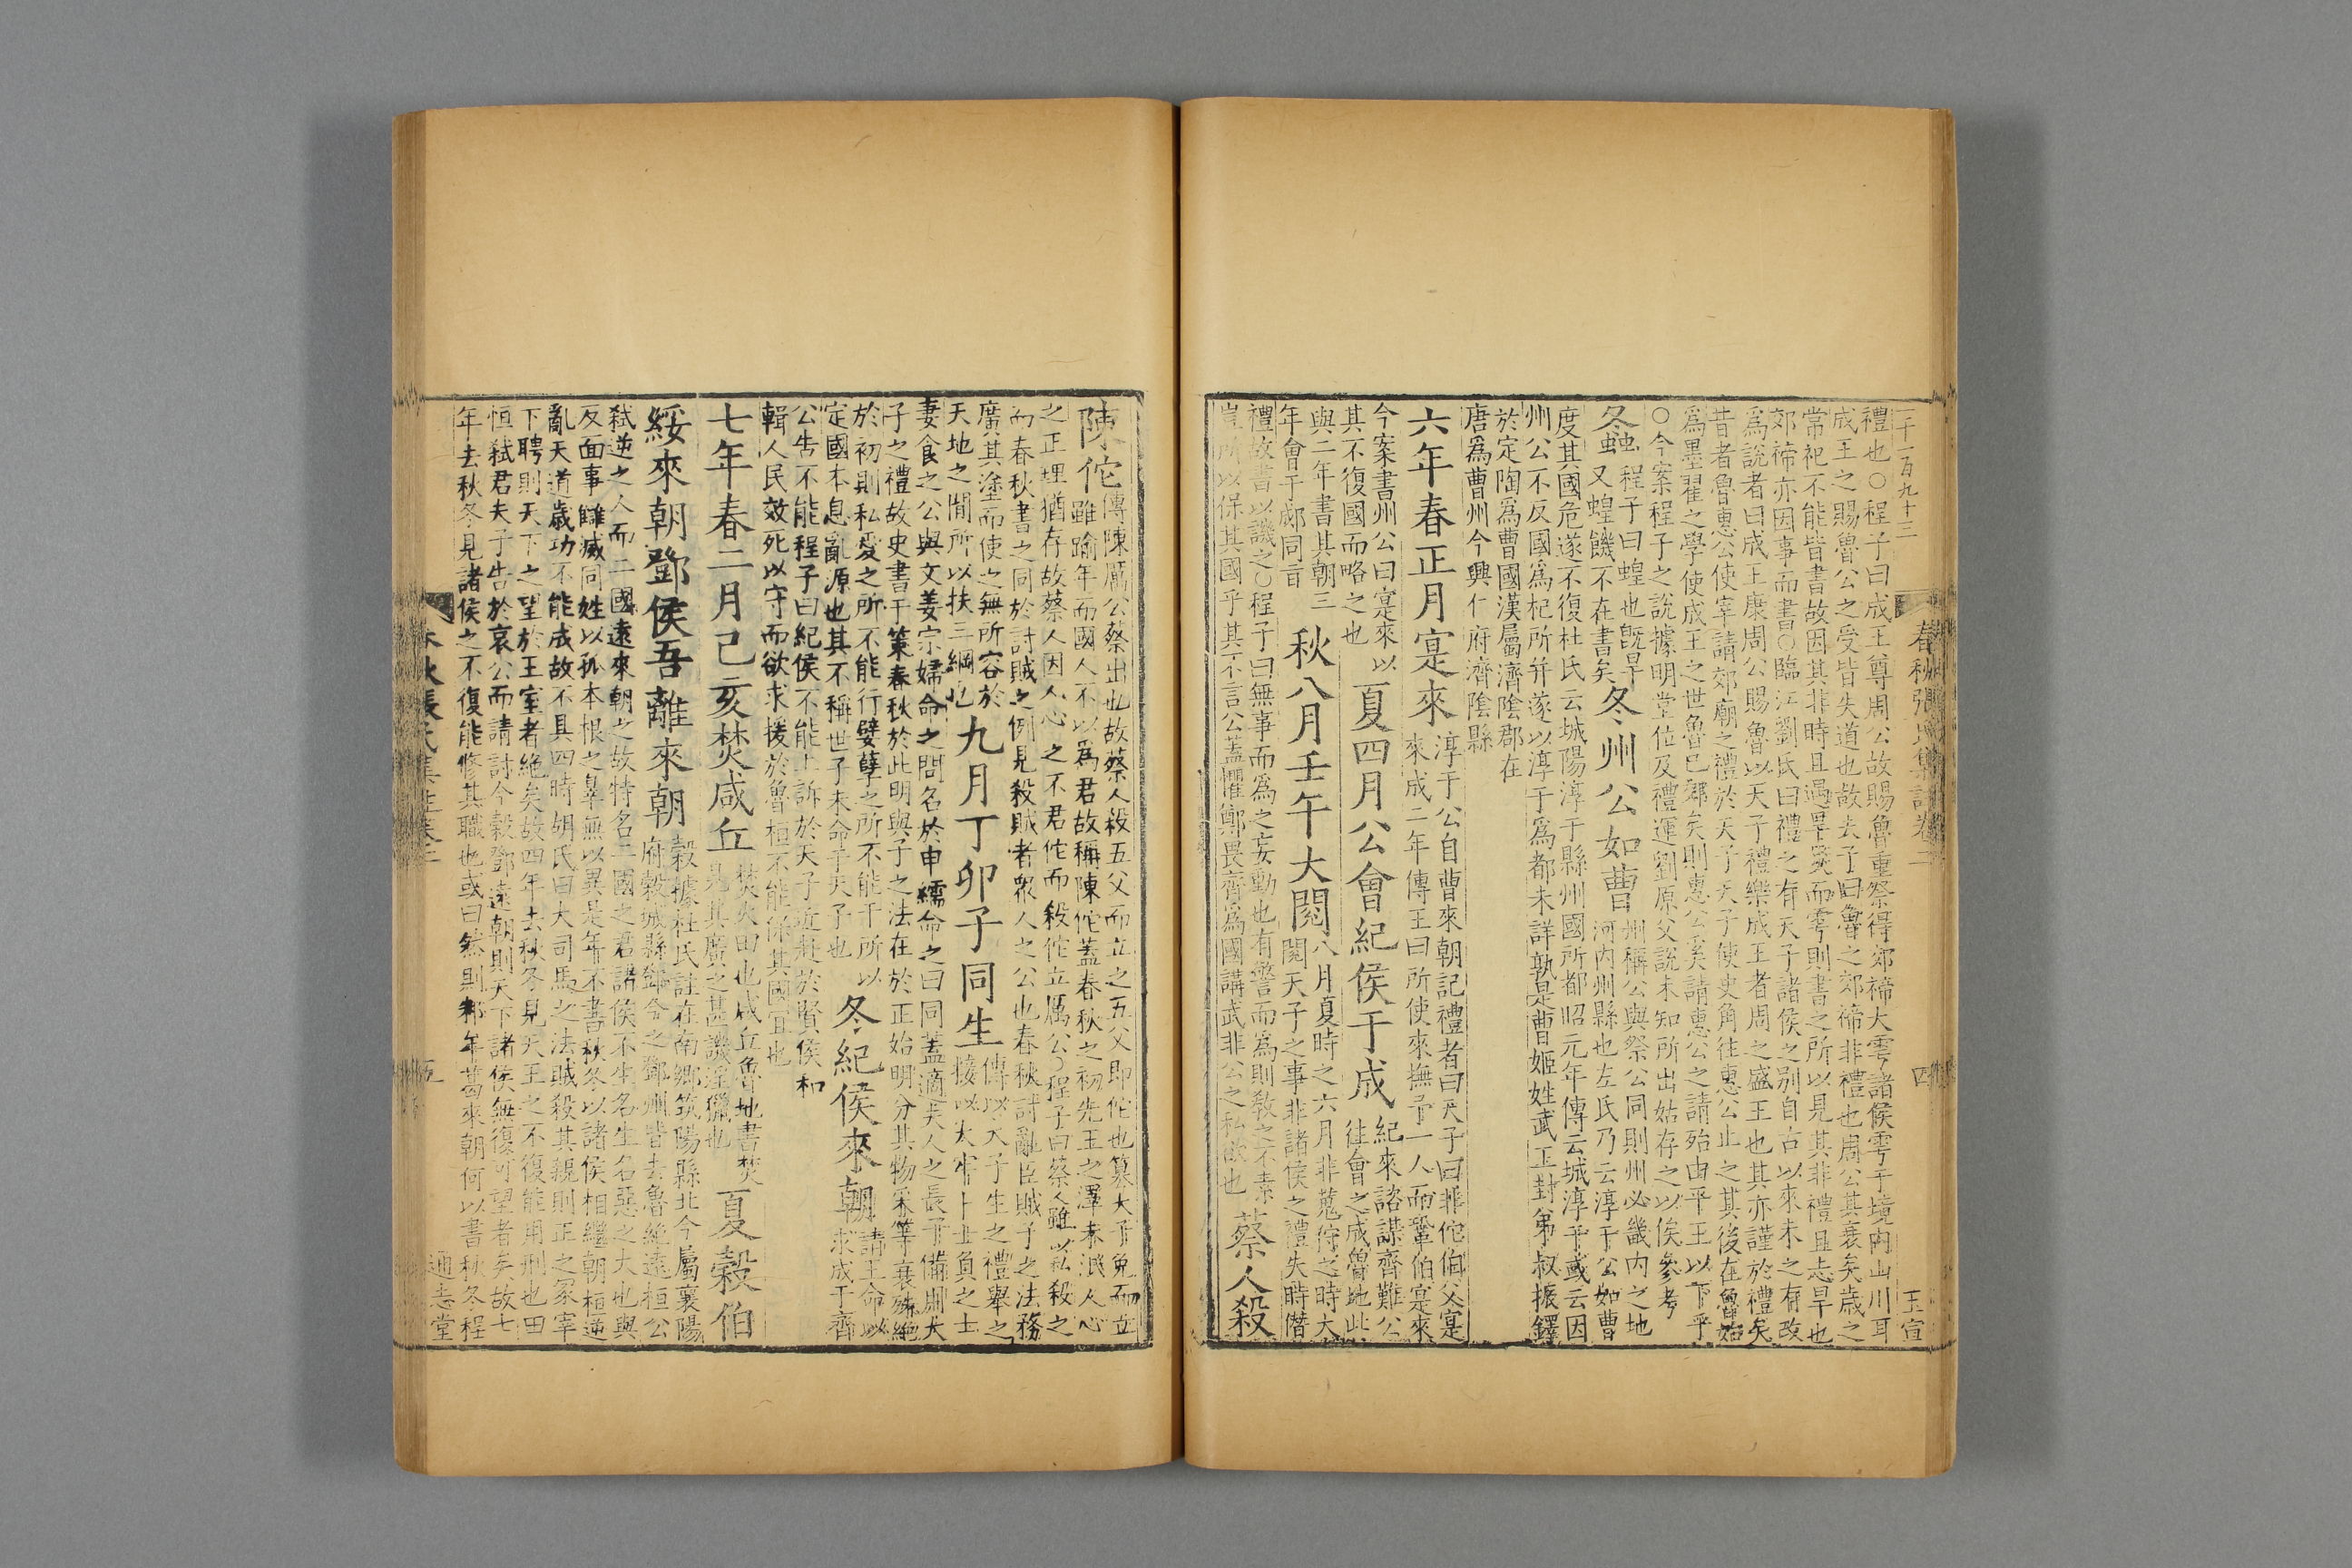 二千一百九十三
春秋張氏集註卷二
四
王宣
禮也○程子曰成王尊周公故賜魯重祭得郊禘大雩諸侯雩于境內山川耳
成王之賜魯公之受皆失道也故夫子曰魯之郊禘非禮也周公其衰矣歲之
常祀不能皆書故因其非時且遇旱災而雩則書之所以見其非禮且志旱也
郊禘亦因事而書○臨江劉氏曰禮之有天子諸侯之别自古以來未之有改
爲說者曰成王康周公賜魯以天子禮樂成王者周之盛王也其亦謹於禮矣
昔者魯惠公使宰請郊廟之禮於天子天子使史角往惠公止之其後在魯始
爲墨翟之學使成王之世魯已郊矣則惠公奚請惠公之請殆由平王以下乎
○今案程子之說據明堂位及禮運劉原父說未知所出姑存之以俟參考
冬螽
程子曰蝗也旣旱
又蝗饑不在書矣
冬州公如曹
州稱公與祭公同則州必畿内之地
河内州縣也左氏乃云淳于公如曹
度其國危遂不復杜氏云城陽淳于縣州國所都昭元年傳云城淳于或云因
州公不反國爲杞所并遂以淳于爲都未詳孰是曹姬姓武王封弟叔振鐸
於定陶爲曹國漢屬濟陰郡在
唐爲曹州今興仁府濟陰縣
六年春正月寔來
淳于公自曹來朝記禮者曰天子曰非佗伯父寔
來成二年傳王曰所使來撫予一人而鞏伯寔來
今案書州公曰寔來以
其不復國而略之也
夏四月公會紀侯于成
紀來諮謀齊難公
往會之成魯地此
與二年書其朝三
年會于郕同㫖
秋八月壬午大閱
八月夏時之六月非蒐狩之時大
閱天子之事非諸侯之禮失時僭
禮故書以譏之○程子曰無事而爲之妄動也有警而爲則教之不素
豈所以保其國乎其不言公蓋懼鄭畏齊爲國講武非公之私欲也
蔡人殺
陳佗
傳陳厲公蔡出也故蔡人殺五父而立之五父即佗也簒大子免而立
雖踰年而國人不以爲君故稱陳佗蓋春秋之初先王之澤未泯人心
之正理猶存故蔡人因人心之不君佗而殺佗立厲公○程子曰蔡人雖以私殺之
而春秋書之同於討賊之例見殺賊者衆人之公也春秋討亂臣賊子之法務
廣其塗而使之無所容於
天地之間所以扶三綱也
九月丁卯子同生
傳以大子生之禮舉之
接以太牢卜士負之士
妻食之公與文姜宗婦命之問名於申繻命之曰同蓋適夫人之長子備用大
子之禮故史書于策春秋於此明與子之法在於正始明分其物采等衰殊絶
於初則私愛之所不能行嬖孽之所不能干所以
定國本息亂源也其不稱世子未命于天子也
冬紀侯來朝
請王命以
求成于齊
公告不能程子曰紀侯不能上訴於天子近赴於賢侯和
輯人民效死以守而欲求援於魯桓不能保其國宜也
七年春二月己亥焚咸丘
焚火田也咸丘魯地書焚
見其廣之甚譏淫獵也
夏穀伯
綏來朝鄧侯吾離來朝
穀據杜氏註在南鄉筑陽縣北今屬襄陽
府穀城縣鄧今之鄧州皆去魯絶遠桓公
弑逆之人而二國遠來朝之故特名二國之君諸侯不生名生名惡之大也與
反面事讎滅同姓以孤本根之辠無以異是年不書秋冬以諸侯相繼朝桓逆
亂天道歲功不能成故不具四時胡氏曰大司馬之法賊殺其親則正之冢宰
下聘則天下之望於王室者絶矣故四年去秋冬見天王之不復能用刑也田
恒弑君夫子告於哀公而請討今穀鄧遠朝則天下諸侯無復可望者矣故七
年去秋冬見諸侯之不復能修其職也或曰然則邾牟葛來朝何以書秋冬程
春秋張氏集註卷二
五
通志堂